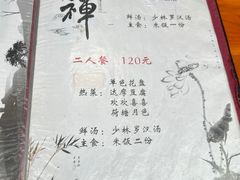 禅
鲜汤：少林罗汉汤
主食：米饭一份
二人餐 120元
单色花盘
热菜：达摩豆腐
欢欢喜喜
荷塘月色
鲜汤：少林罗汉汤
主食：米饭二份